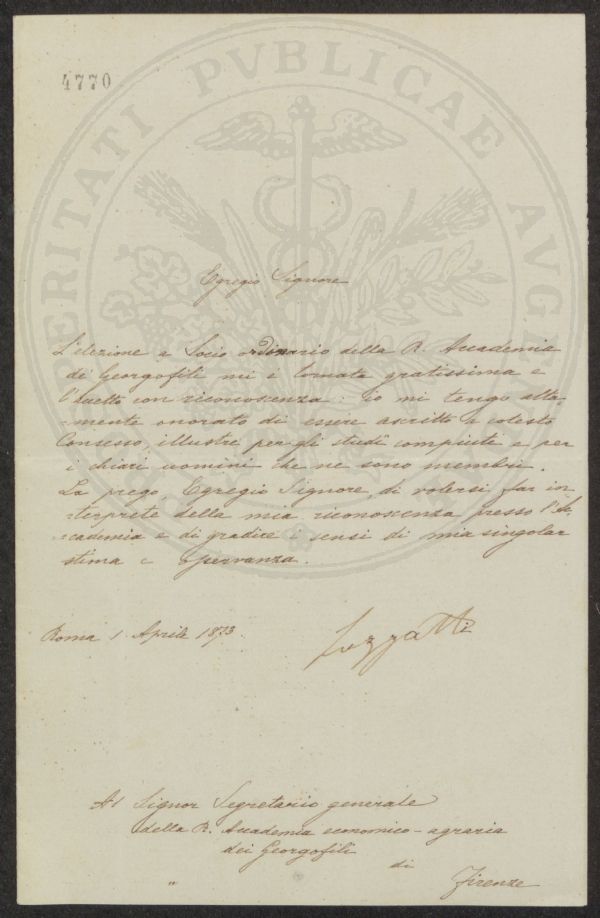 4770
PROSPERITATI PVBLICAE AVGENDAE
Egregio Signore
L'elezione a Socio ordinario della R. Accademia
dei Georgofili mi è tornata gratissima e
l'accetto con riconoscenza: io mi tengo alta-
mente onorato di essere ascritto a cotesto
Consesso, illustre per gli studî compiuti e per
i chiari uomini che ne sono membri.
La prego, Egregio Signore, di volersi far in-
terprete della mia riconoscenza presso l'Ac-
cademia e di gradire i sensi di mia singolar
stima e osservanza.
Roma 1 Aprile 1873.
Luzzatti
Al Signor Segretario generale
della R. Accademia economico-agraria
dei Georgofili
di
Firenze